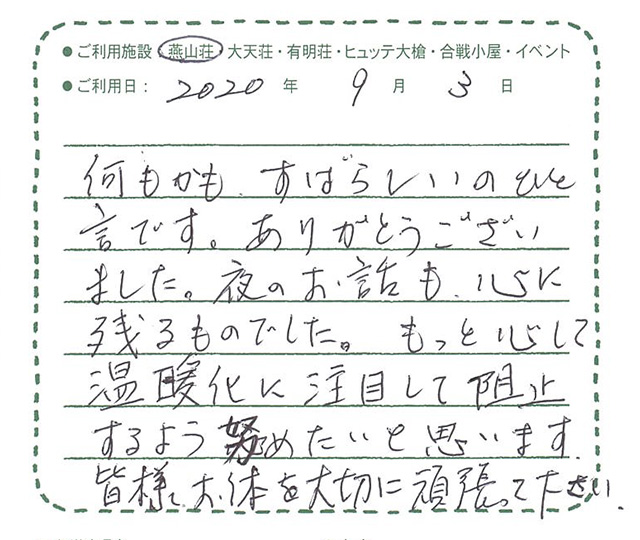 ● ご利用施設：燕山荘・大天荘・有明荘・ヒュッテ大槍・合戦小屋・イベント
● ご利用日： 2020 年 9 月 3 日
何もかも、すばらしいのひと
言です。ありがとうござい
ました。夜のお話も、心に
残るものでした。 もっと心して
温暖化に注目して阻止
するよう努めたいと思います。
皆様、お体を大切に頑張って下さい。